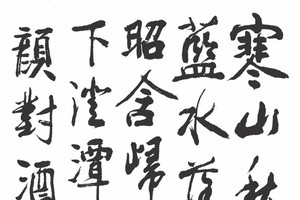 寒山秋
藍水
昭含歸
下澄潭
顏對酒